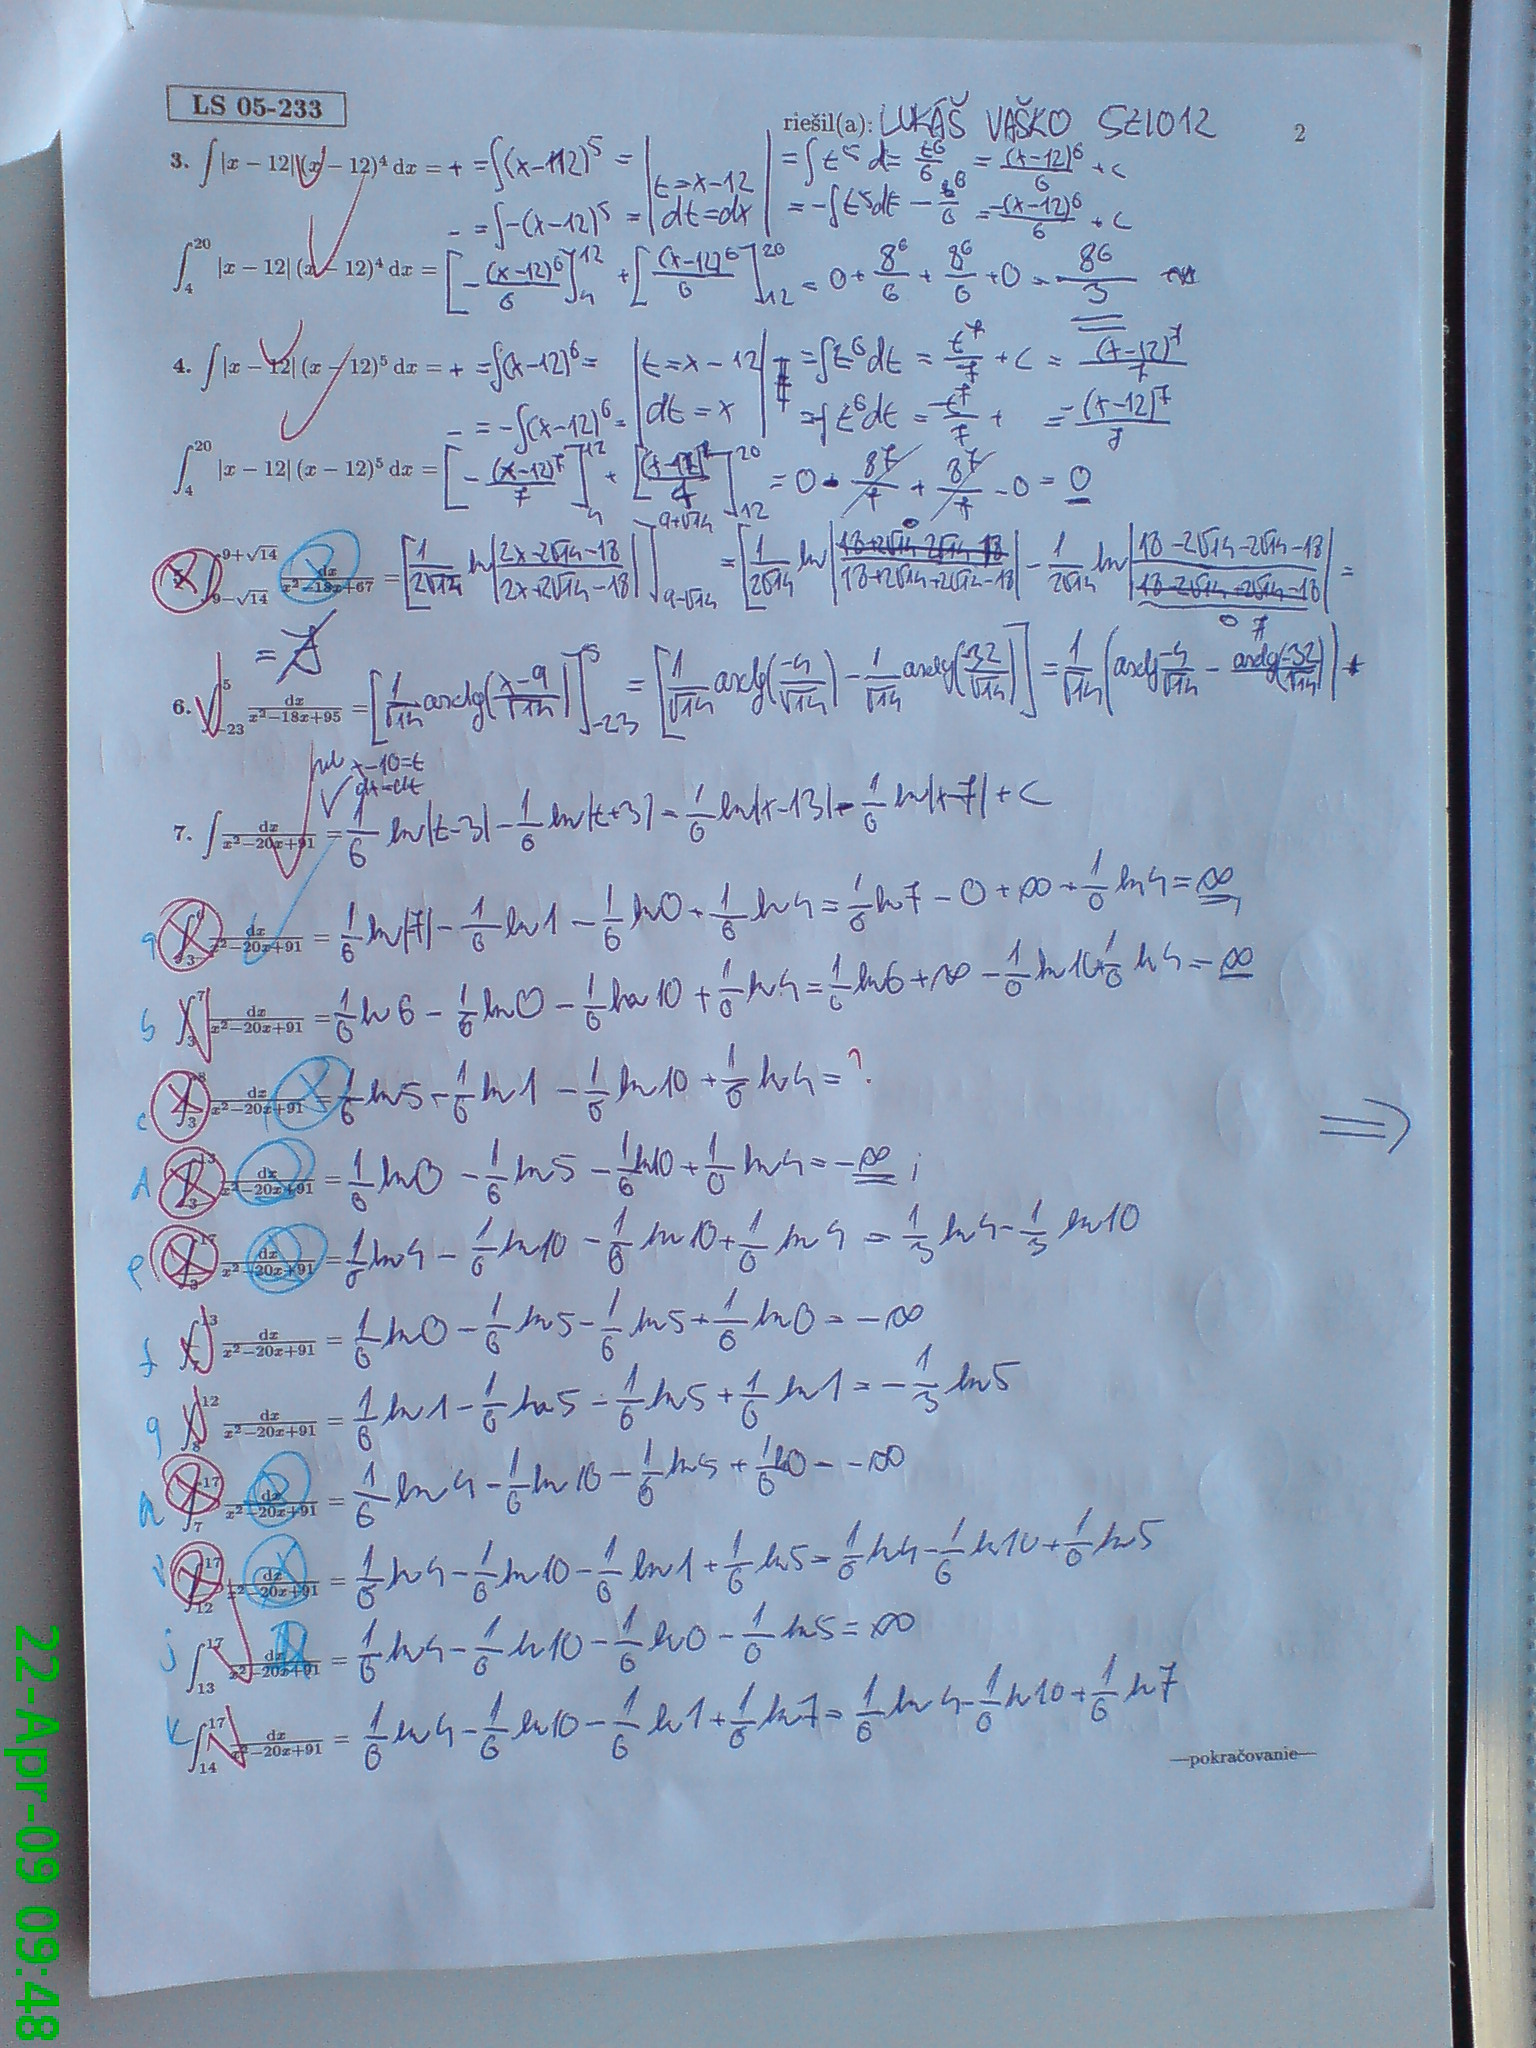 LS 05-233
riešil(a): LUKÁŠ VAŠKO 5ZI012
2
3. ∫ |x − 12| (x − 12)⁴ dx = + = ∫(x−12)⁵ = | t = x−12 | = ∫ t⁵ dt = t⁶/6 = (x−12)⁶/6 + c
− = ∫ −(x−12)⁵ = | dt = dx | = −∫ t⁵ dt − t⁶/6 = −(x−12)⁶/6 + c
∫₄²⁰ |x − 12| (x − 12)⁴ dx = [−(x−12)⁶/6]₄¹² + [(x−12)⁶/6]₁₂²⁰ = 0 + 8⁶/6 + 8⁶/6 + 0 = 8⁶/3
4. ∫ |x − 12| (x − 12)⁵ dx = + = ∫(x−12)⁶ = | t = x − 12 | = ∫ t⁶ dt = t⁷/7 + c = (x−12)⁷/7
− = −∫(x−12)⁶ = | dt = x | = −∫ t⁶ dt = −t⁷/7 + = −(x−12)⁷/7
∫₄²⁰ |x − 12| (x − 12)⁵ dx = [−(x−12)⁷/7]₄¹² + [(x−12)⁷/7]₁₂²⁰ = 0 − 8⁷/7 + 8⁷/7 − 0 = 0
5. ∫_{9−√14}^{9+√14} dx/(x²−18x+67) = [1/(2√14) ln|(2x−2√14−18)/(2x+2√14−18)|]_{9−√14}^{9+√14} = [1/(2√14) ln|(18+2√14−2√14−18)/(18+2√14+2√14−18)| − 1/(2√14) ln|(18−2√14−2√14−18)/(18−2√14+2√14−18)| =
=
6. ∫₋₂₃⁵ dx/(x²−18x+95) = [1/√14 arctg(x−9/√14)]₋₂₃⁵ = [1/√14 arctg(−4/√14) − 1/√14 arctg(−32/√14)] = 1/√14 (arctg −4/√14 − arctg(−32/√14))
x−10=t
dx=dt
7. ∫ dx/(x²−20x+91) = 1/6 ln|t−3| − 1/6 ln|t+3| = 1/6 ln|x−13| − 1/6 ln|x−7| + c
a ∫₃ dx/(x²−20x+91) = 1/6 ln|7| − 1/6 ln 1 − 1/6 ln 0 + 1/6 ln 4 = 1/6 ln 7 − 0 + ∞ + 1/6 ln 4 = ∞
b ∫₃⁷ dx/(x²−20x+91) = 1/6 ln 6 − 1/6 ln 0 − 1/6 ln 10 + 1/6 ln 4 = 1/6 ln 6 + ∞ − 1/6 ln 10 + 1/6 ln 4 = ∞
c ∫₃⁸ dx/(x²−20x+91) = 1/6 ln 5 − 1/6 ln 1 − 1/6 ln 10 + 1/6 ln 4 = ?
⇒
d ∫₃¹³ dx/(x²−20x+91) = 1/6 ln 0 − 1/6 ln 5 − 1/6 ln 10 + 1/6 ln 4 = −∞ ;
e ∫₃¹⁷ dx/(x²−20x+91) = 1/6 ln 4 − 1/6 ln 10 − 1/6 ln 10 + 1/6 ln 4 = 1/3 ln 4 − 1/3 ln 10
f ∫¹³ dx/(x²−20x+91) = 1/6 ln 0 − 1/6 ln 5 − 1/6 ln 5 + 1/6 ln 0 = −∞
g ∫₈¹² dx/(x²−20x+91) = 1/6 ln 1 − 1/6 ln 5 − 1/6 ln 5 + 1/6 ln 1 = −1/3 ln 5
h ∫₇¹⁷ dx/(x²−20x+91) = 1/6 ln 4 − 1/6 ln 10 − 1/6 ln 5 + 1/6 ln 0 = −∞
i ∫₁₂¹⁷ dx/(x²−20x+91) = 1/6 ln 4 − 1/6 ln 10 − 1/6 ln 1 + 1/6 ln 5 = 1/6 ln 4 − 1/6 ln 10 + 1/6 ln 5
j ∫₁₃¹⁷ dx/(x²−20x+91) = 1/6 ln 4 − 1/6 ln 10 − 1/6 ln 0 − 1/6 ln 5 = ∞
k ∫₁₄¹⁷ dx/(x²−20x+91) = 1/6 ln 4 − 1/6 ln 10 − 1/6 ln 1 + 1/6 ln 7 = 1/6 ln 4 − 1/6 ln 10 + 1/6 ln 7
—pokračovanie—
22-Apr-09 09:48